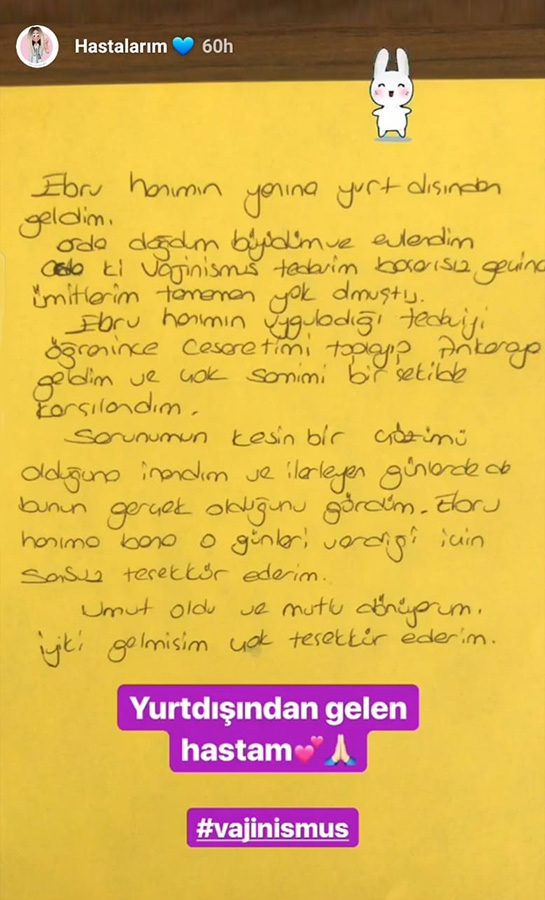 Hastalarım 💙 60h
Ebru hanımın yanına yurt dışından
geldim.
orda doğdum büyüdüm ve evlendim
Orda ki vajinismus tedavim başarısız geçince
ümitlerim tamamen yok olmuştu.
Ebru hanımın uyguladığı tedaviyi
öğrenince cesaretimi toplayıp Ankaraya
geldim ve çok samimi bir şekilde
karşılandım.
Sorunumun kesin bir çözümü
olduğuna inandım ve ilerleyen günlerde de
bunun gerçek olduğunu gördüm. Ebru
hanıma bana o günleri verdiği için
sonsuz teşekkür ederim.
Umut oldu ve mutlu dönüyorum.
iyiki gelmişim çok teşekkür ederim.
Yurtdışından gelen
hastam💕🙏🏻
#vajinismus